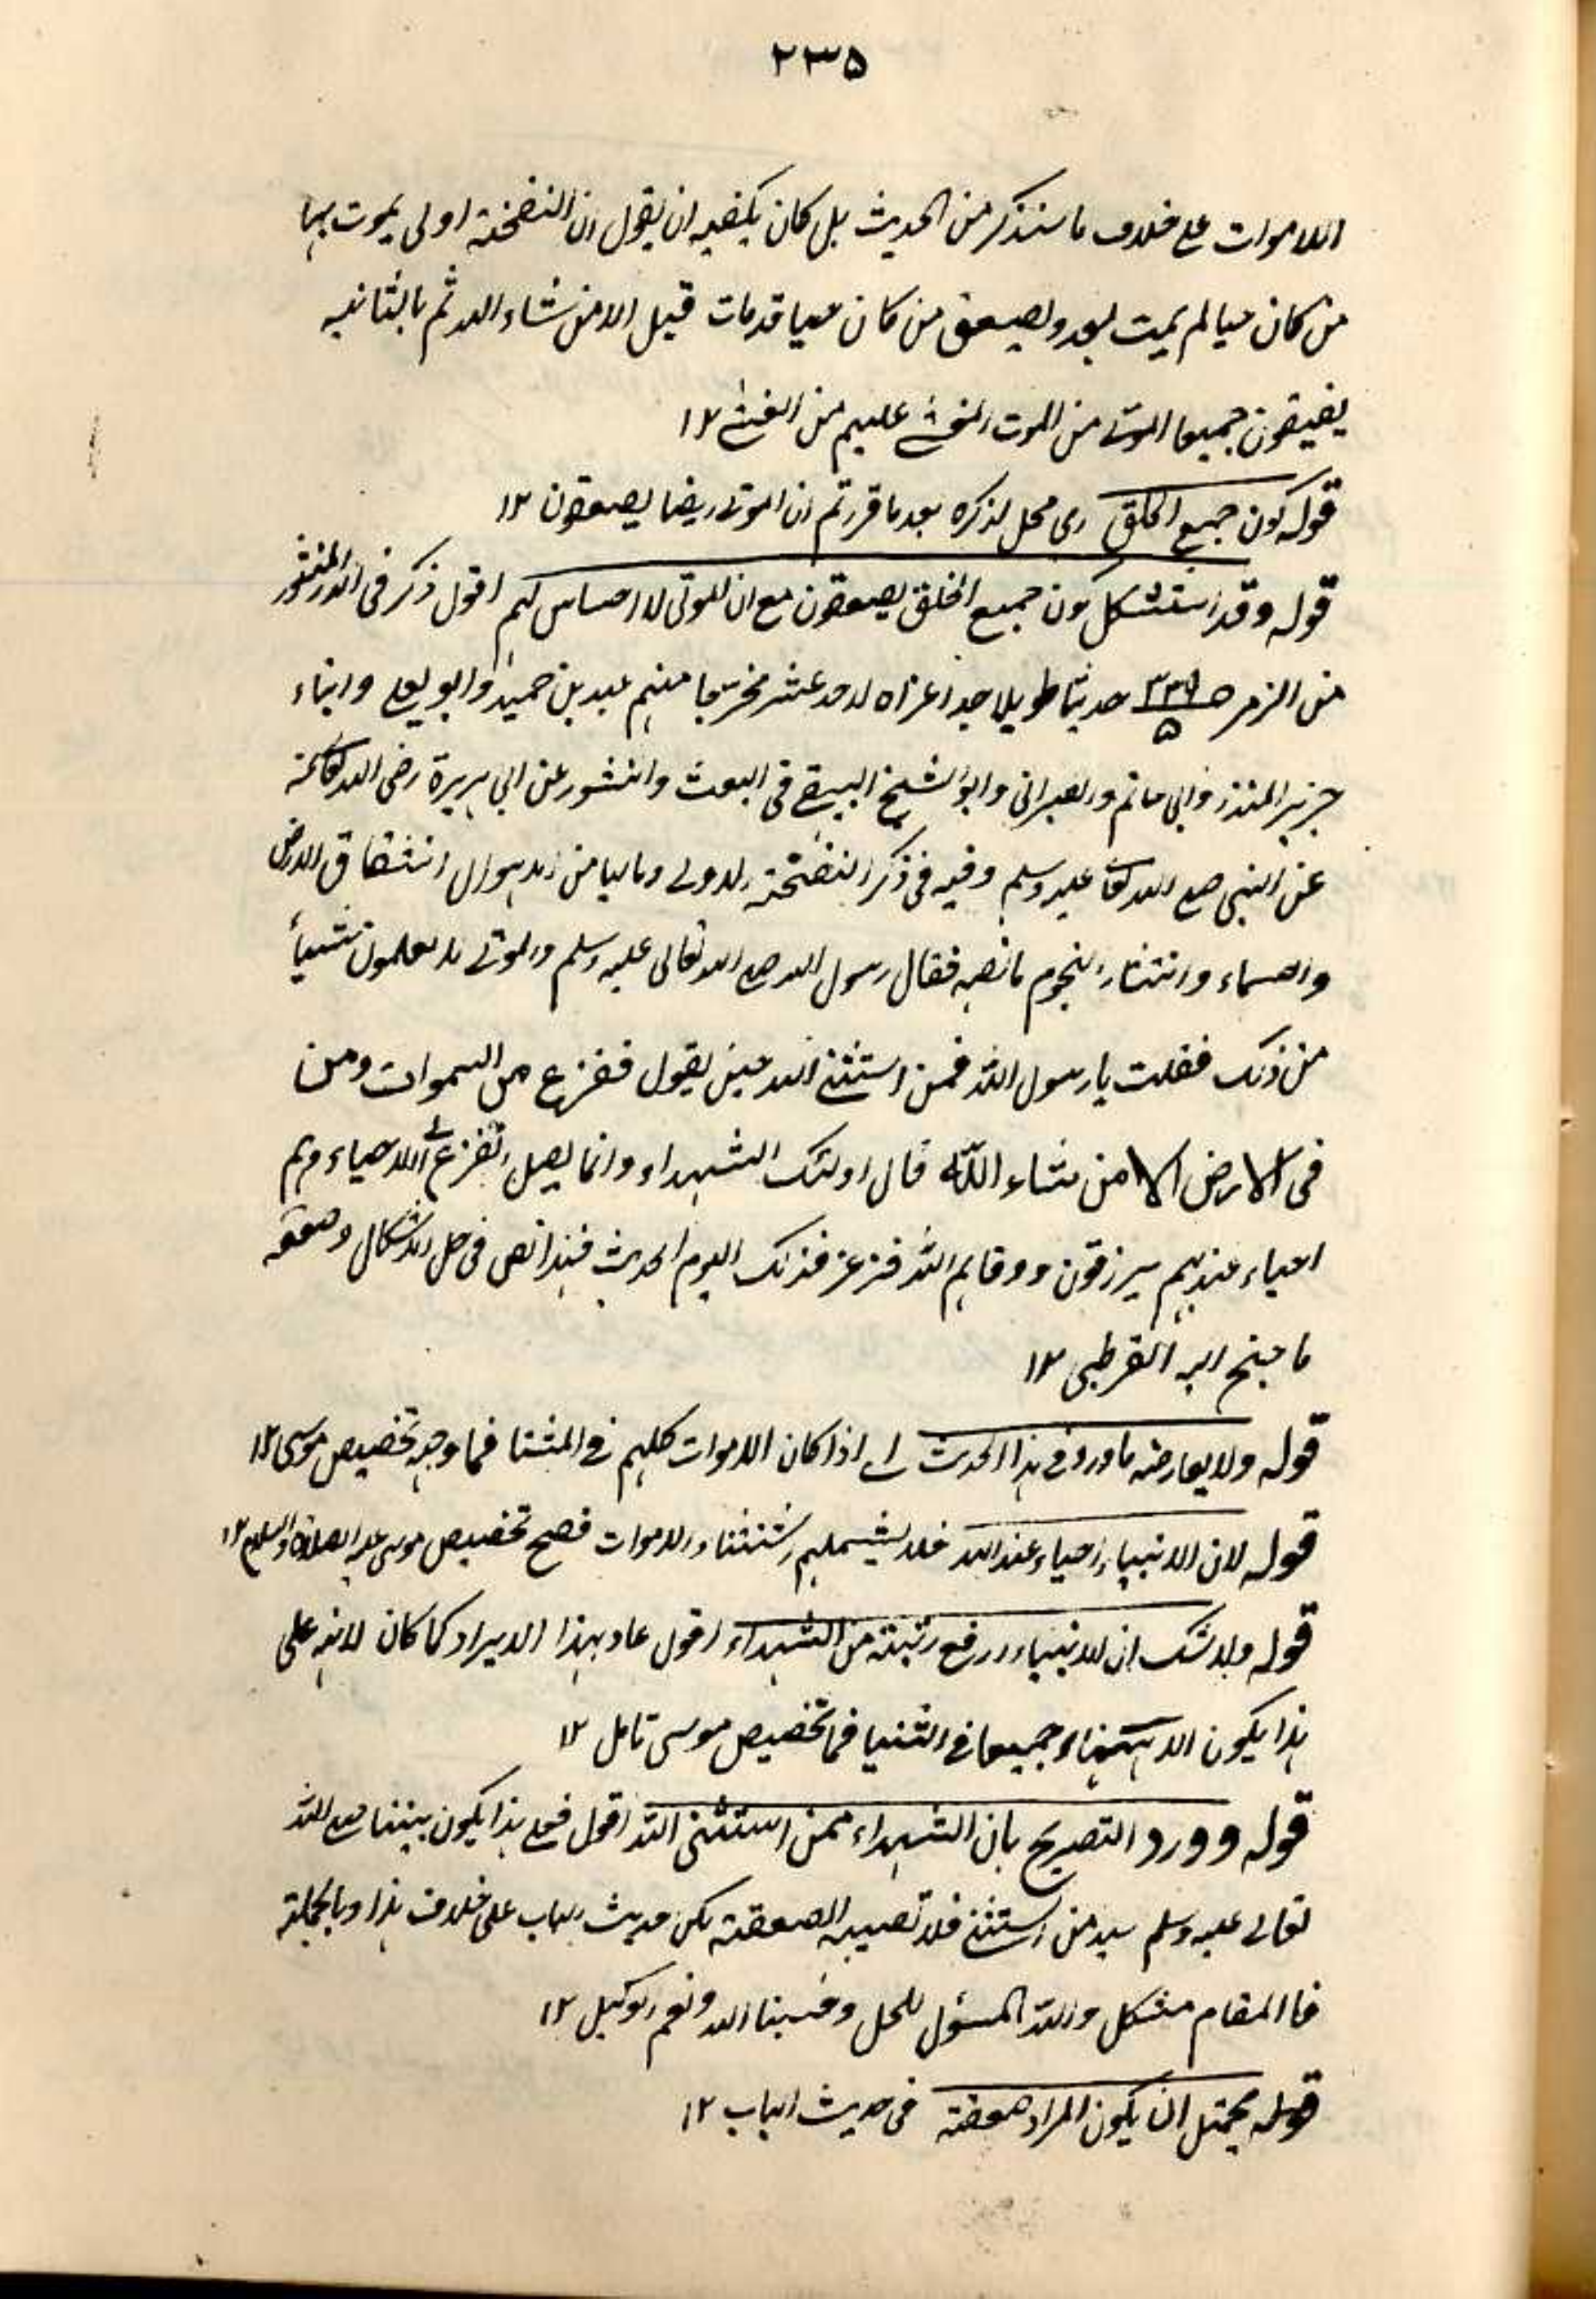 ٢٣٥
الاموات على خلاف ما سنذكر من الحديث بل كان يكفيه ان يقول ان النفخة اولى يموت بها
من كان حيا لم يمت بعد ويصعق من كان حيا قدمات قبل الا من شاء الله ثم بالثانية
يفيقون جميعا الموتى من الموت والمغشى عليهم من الغشى ١٢
قوله كون جميع الخلق اى محل لذكره بعد ما قررتم ان الموتى ايضا يصعقون ١٢
قوله وقد استشكل كون جميع الخلق يصعقون مع ان الموتى لا احساس لهم اقول ذكر فى الدر المنثور
من الزمر ص ٣٣٦/٥ حديثا طويلا جدا عزاه لاحد عشر مخرجا منهم عبد بن حميد وابو يعلى وابناء
جرير المنذر وابى حاتم والطبرانى وابو الشيخ البيهقى فى البعث والنشور عن ابى هريرة رضى الله تعالى عنه
عن النبى صلى الله تعالى عليه وسلم وفيه فى ذكر النفخة الاولى وما لها من الاهوال انشقاق الارض
والسماء وانتثار النجوم ما نصه فقال رسول الله صلى الله تعالى عليه وسلم والموتى لا يعلمون شيأ
من ذلك فقلت يا رسول الله فمن استثنى الله حين يقول ففزع من السموات ومن
فى الارض الا من شاء الله قال اولئك الشهداء وانما يصل الفزع الى الاحياء وهم
احياء عند ربهم يرزقون ووقاهم الله فزع ذلك اليوم الحديث فهذا نص فى حل الاشكال وصعقه
ما جنح اليه القرطبى ١٢
قوله ولا يعارضه ما ورد فى هذا الحديث اى اذا كان الاموات كلهم فى المثنا فما وجه تخصيص موسى ١٢
قوله لان الانبياء احياء عند الله فلا يشملهم استثناء الاموات فصح تخصيص موسى عليه الصلاة والسلام ١٢
قوله ولا شك ان للانبياء ارفع رتبة من الشهداء اقول عاد بهذا الايراد كما كان لانه على
هذا يكون الانبياء جميعا فى الثنيا فما تخصيص موسى تامل ١٢
قوله وورد التصريح بان الشهداء ممن استثنى الله اقول فعلى هذا يكون نبينا صلى الله
تعالى عليه وسلم سيد من استثنى فلا تصيبه الصعقة لكن حديث الباب على خلاف هذا وبالجملة
فالمقام مشكل والله المسؤل للحل وحسبنا الله ونعم الوكيل ١٢
قوله يحتمل ان يكون المراد صعقة فى حديث الباب ١٢